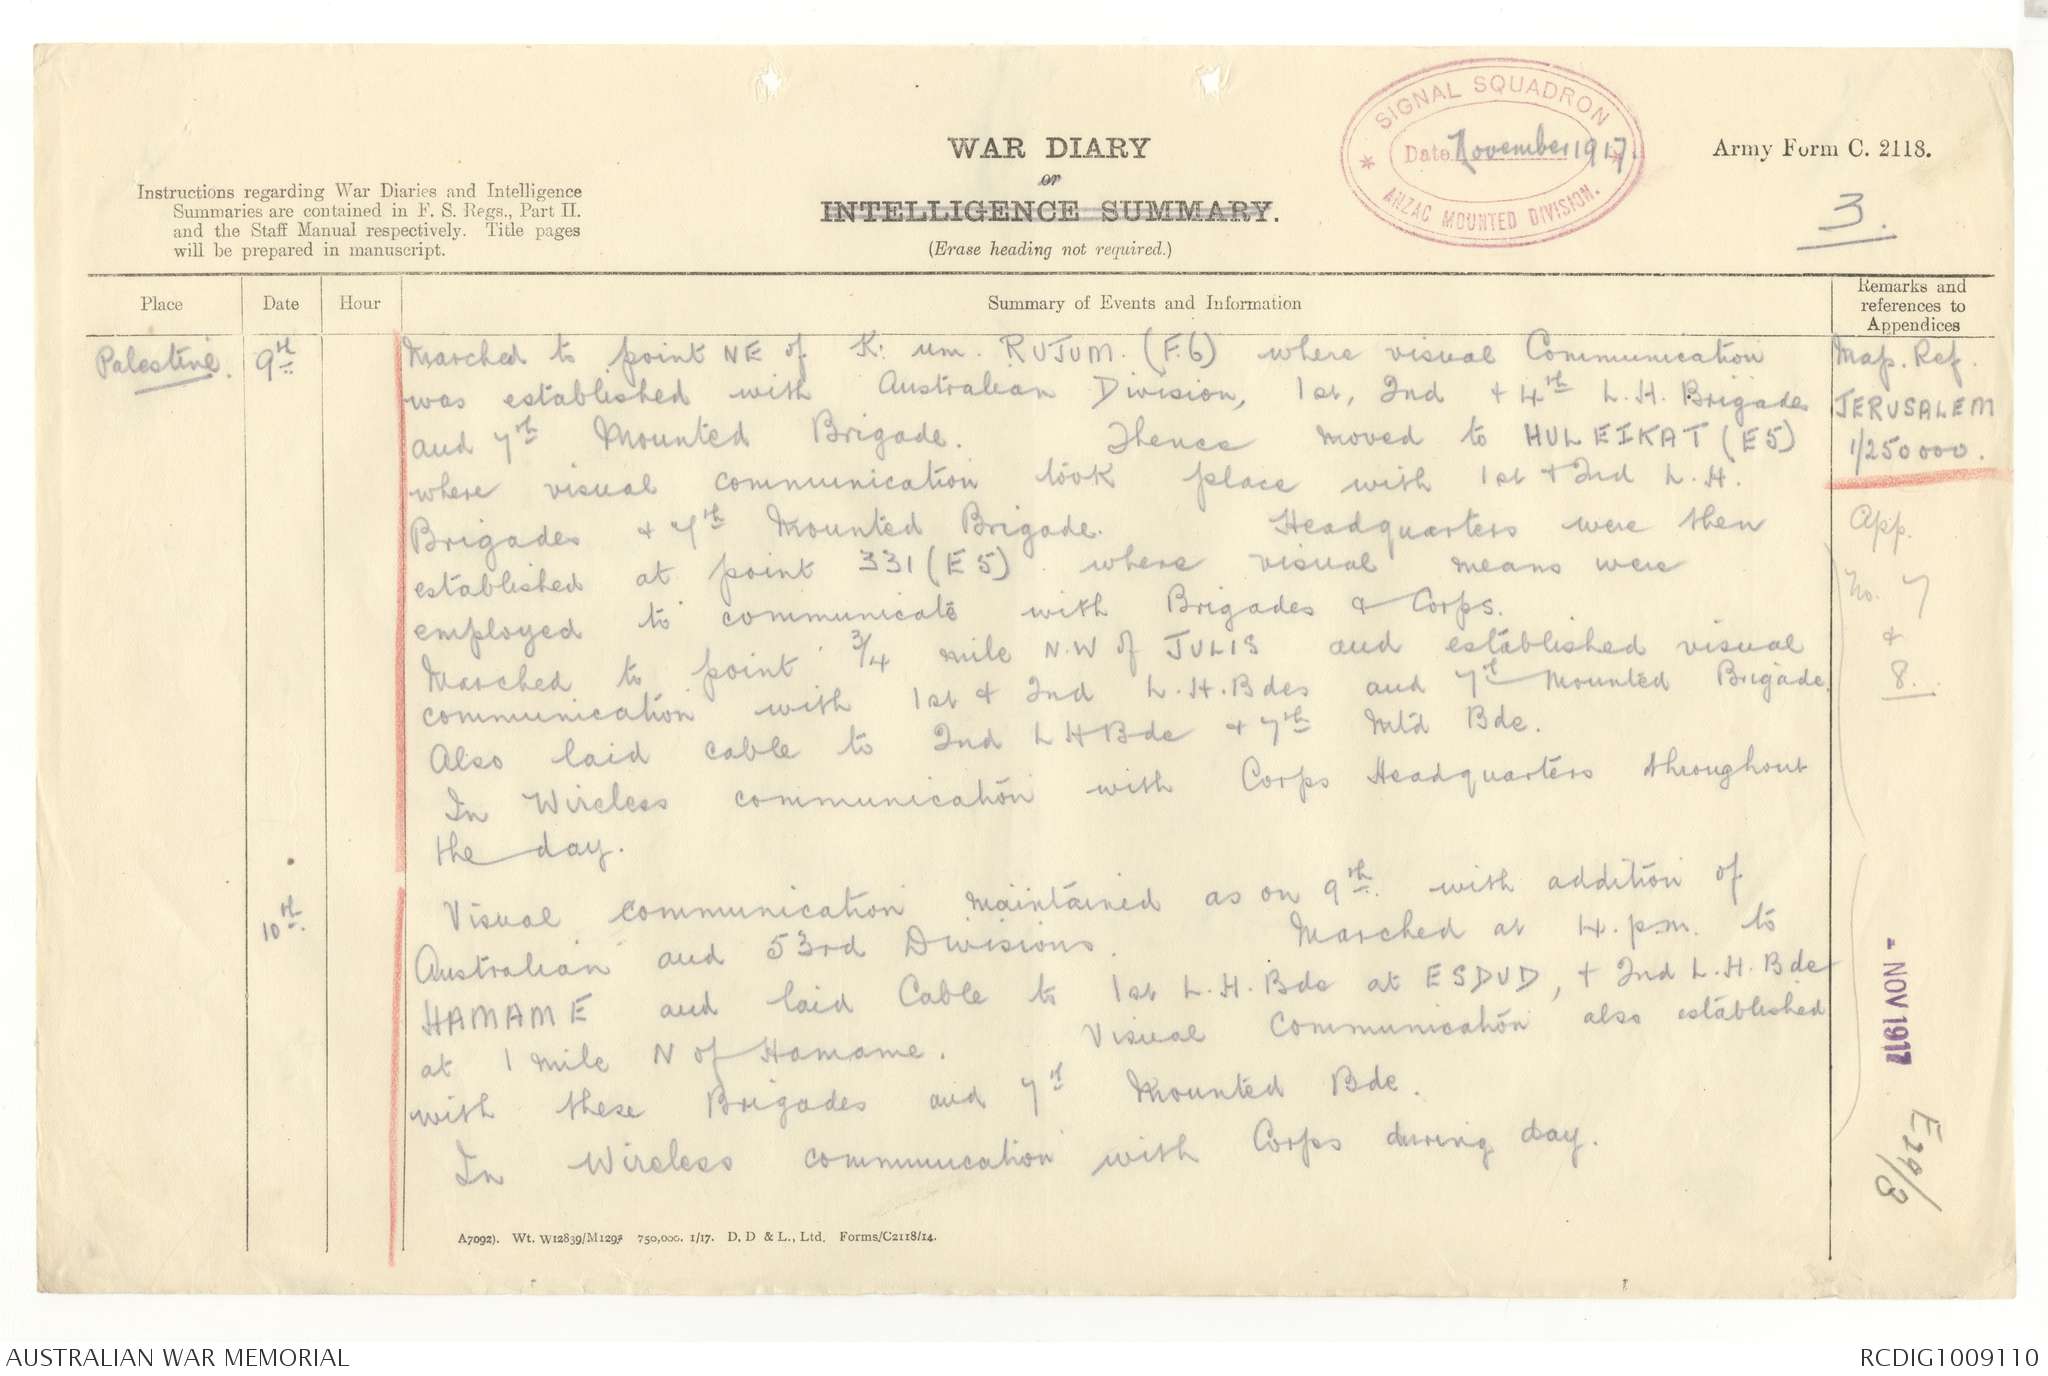 WAR DIARY
or
INTELLIGENCE SUMMARY.
(Erase heading not required.)
Instructions regarding War Diaries and Intelligence
Summaries are contained in F. S. Regs., Part II.
and the Staff Manual respectively. Title pages
will be prepared in manuscript.
SIGNAL SQUADRON
Date November 1917.
ANZAC MOUNTED DIVISION.
Army Form C. 2118.
3.
Place
Date
Hour
Summary of Events and Information
Remarks and
references to
Appendices
Palestine.
9th
Marched to point NE of K: um. RUJUM. (F.6) where visual Communication
was established with Australian Division, 1st, 2nd + 4th L.H. Brigades
and 7th Mounted Brigade. Thence moved to HULEIKAT (E5)
where visual communication took place with 1st + 2nd L.H.
Brigades + 7th Mounted Brigade. Headquarters were then
established at point 331 (E5) where visual means were
employed to communicate with Brigades & Corps.
Marched to point 3/4 mile N.W of JULIS and established visual
communication with 1st & 2nd L.H.Bdes and 7th Mounted Brigade.
Also laid cable to 2nd LHBde + 7th Mtd Bde.
In Wireless communication with Corps Headquarters throughout
the day.
10th
Visual communication maintained as on 9th. with addition of
Australian and 53rd Divisions. Marched at 4.p.m. to
HAMAME and laid Cable to 1st L.H.Bde at ESDUD, + 2nd L.H.Bde
at 1 mile N of Hamame. Visual Communication also established
with these Brigades and 7th Mounted Bde.
In Wireless communication with Corps during day.
Map. Ref.
JERUSALEM
1/250000.
App.
No. 7
+
8.
- NOV 1917
E29/3
A7092). Wt. W12839/M1293 750,000. 1/17. D. D & L., Ltd. Forms/C2118/14.
AUSTRALIAN WAR MEMORIAL
RCDIG1009110